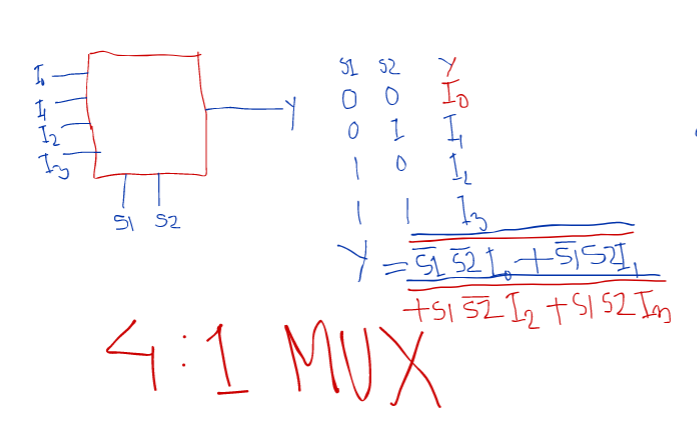 I₀
I₁
I₂
I₃
Y
S1 S2
S1 S2 Y
0 0 I₀
0 1 I₁
1 0 I₂
1 1 I₃
Y = S̅1̅ S̅2̅ I₀ + S̅1̅ S2 I₁
+ S1 S̅2̅ I₂ + S1 S2 I₃
4:1 MUX